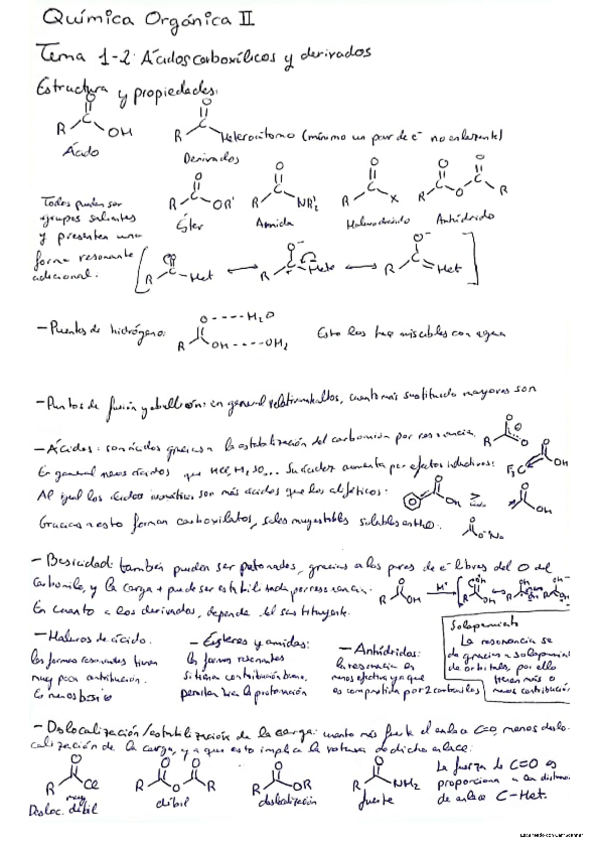 Química Orgánica II
Tema 1-2: Ácidos carboxílicos y derivados
Estructura y propiedades:
O O
R OH R Heteroátomo (mínimo un par de e⁻ no enlazante)
Ácido Derivados
Todos pueden ser
grupos salientes
y presentan una
forma resonante
adicional.
R OR' R NR'₂ R X R O R
Éster Amida Anhídrido
R C Het ⟷ R C Het ⟷ R C Het
- Puentes de hidrógeno: R O----H₂O OH----OH₂ Esto los hace miscibles con agua
- Puntos de fusión y ebullición: en general relativamente altos, cuanto más sustituido mayores son
- Ácidos: son ácidos gracias a la estabilización del por resonancia.
En general menos ácidos que HCl, H₂SO... Su acidez aumenta por efectos inductivos: F₃C OH
Al igual los ácidos aromáticos son más ácidos que los alifáticos:
Gracias a esto forman carboxilatos, sales muy estables solubles en H₂O.
- Basicidad: también pueden ser protonados, gracias a los pares de e⁻ libres del O del
carbonilo, y la carga + puede ser estabilizada por resonancia.
En cuanto a los derivados, depende del sustituyente.
- Haluros de ácido:
las formas resonantes tienen
muy poca contribución.
Es menos básico
- Ésteres y amidas:
las formas resonantes
si tienen contribución buena,
permiten la protonación
- Anhídridos:
la resonancia es
menos efectiva ya que
es compartida por 2 carbonilos
Solapamiento
La resonancia se
da gracias a solapamient
de orbitales, por ello
tienen más o
menos contribución
- Deslocalización/estabilización de la carga: cuanto más fuerte el enlace C=O, menos deslo-
calización de la carga, ya que esto implica la rotura de dicho enlace:
R Cl R O R R OR R NH₂
Desloc. muy débil débil deslocalización fuerte
La fuerza de C=O es
proporciona a la distan
de enlace C-Het.
Escaneado con CamScanner